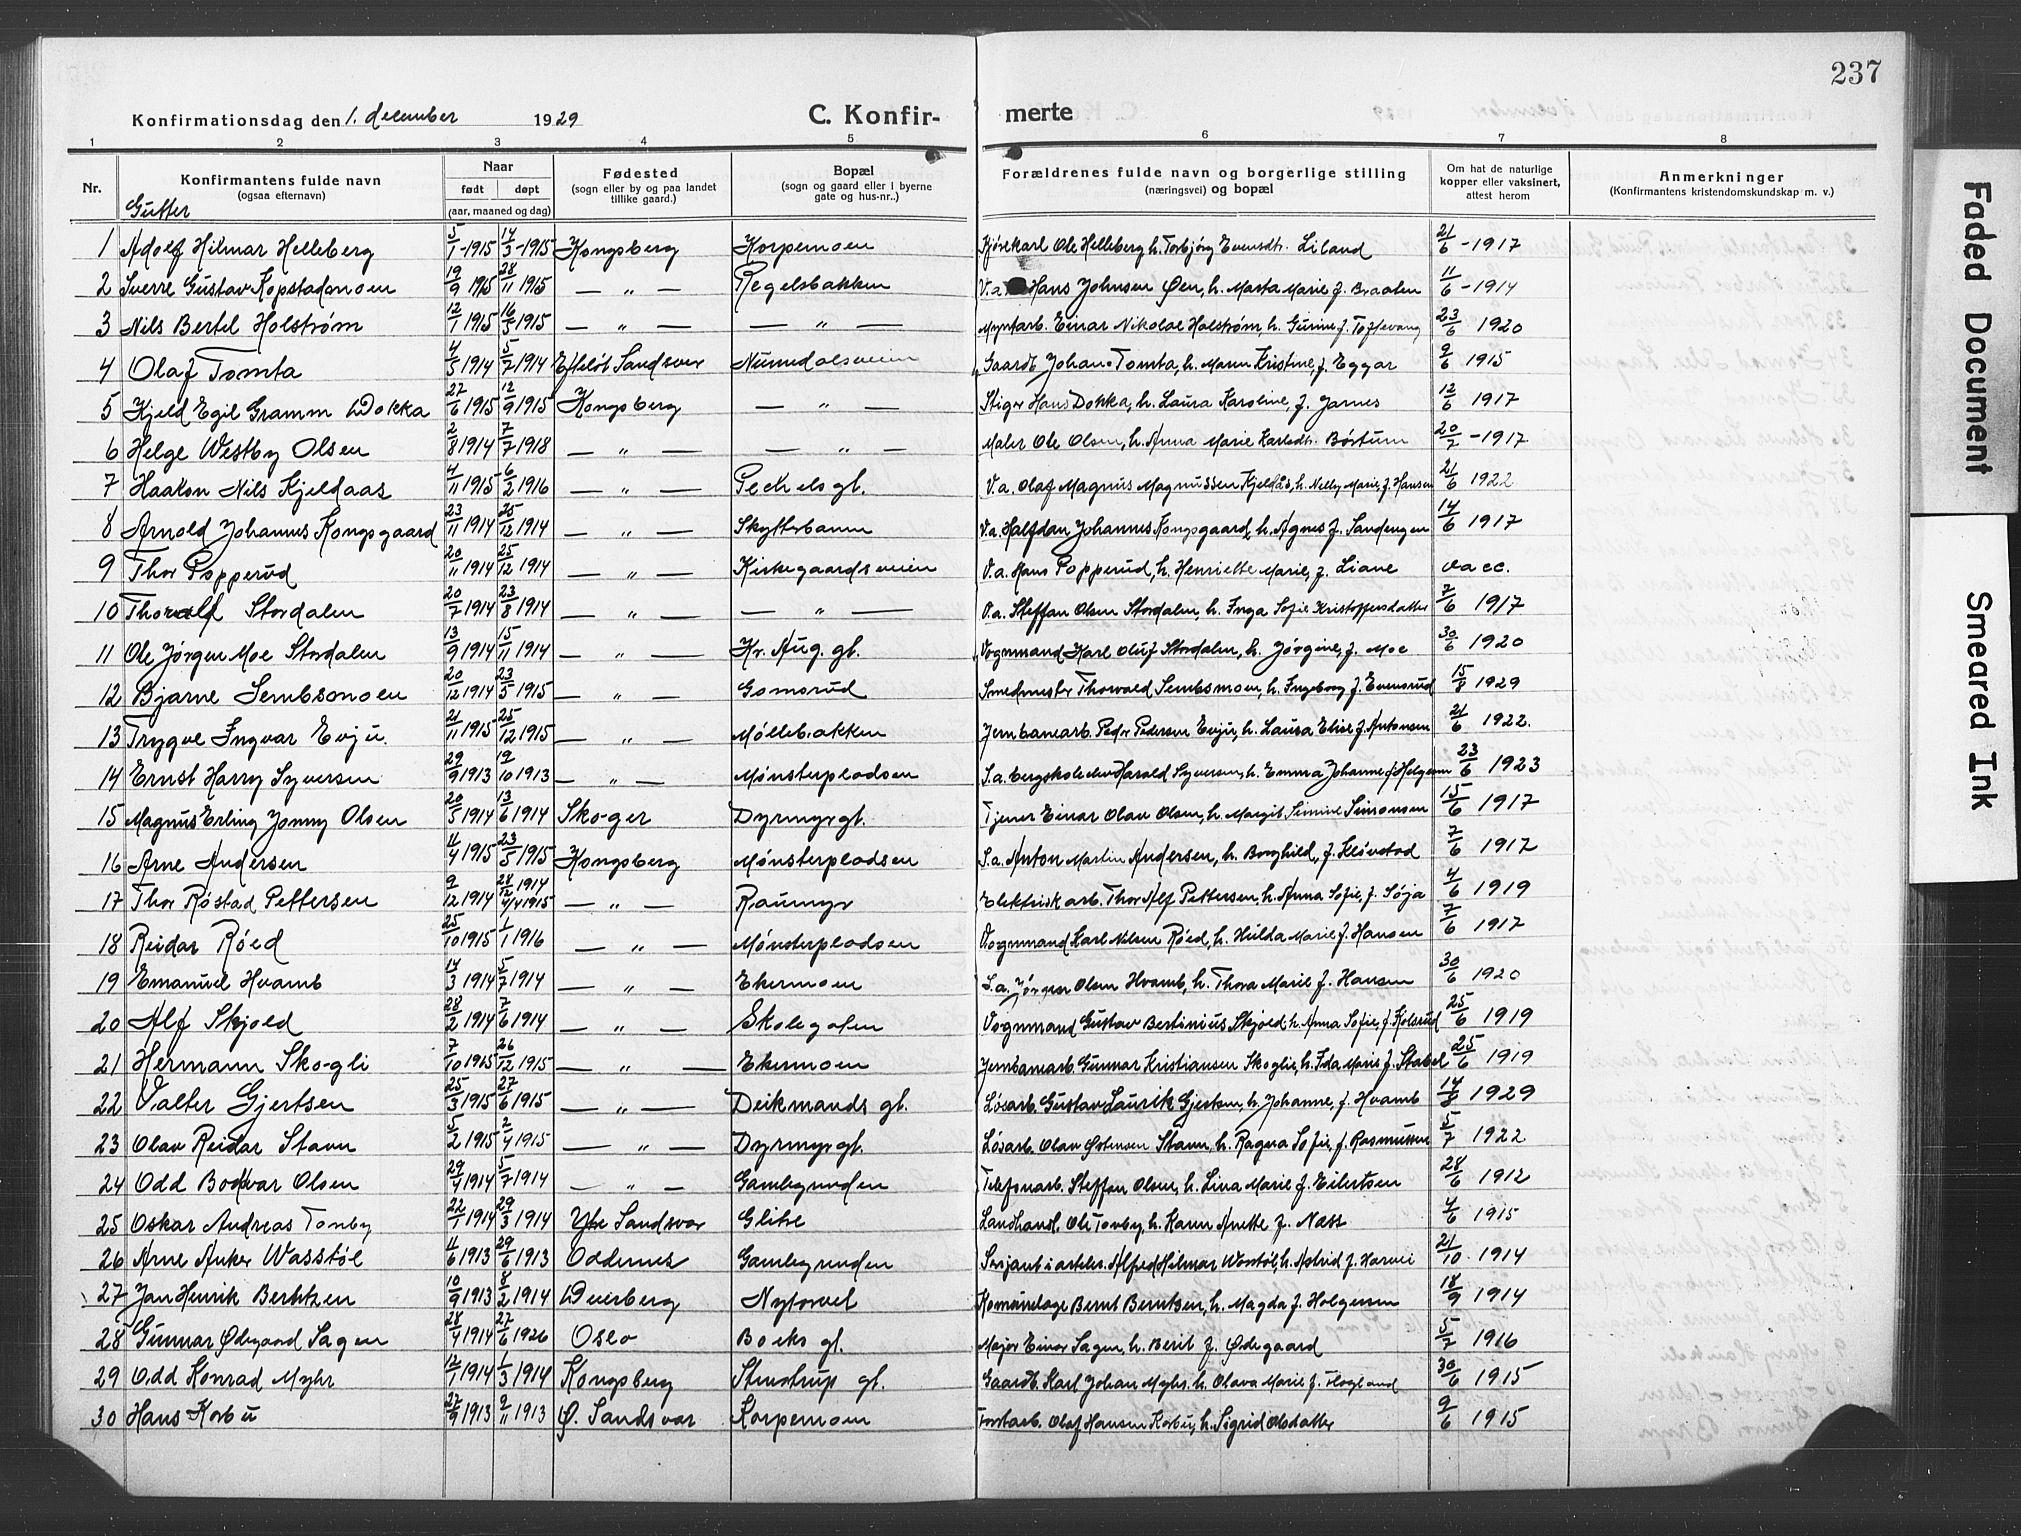 237
Konfirmationsdag den 1. december 1929 C. Konfirmerte
1 2 3 4 5 6 7 8
Nr. Konfirmantens fulde navn (ogsaa efternavn) Naar født døpt (aar, maaned og dag) Fødested (sogn eller by og paa landet tillike gaard.) Bopæl (sogn og gaard eller i byerne gate og hus-nr..) Forældrenes fulde navn og borgerlige stilling (næringsvei) og bopæl Om hat de naturlige kopper eller vaksinert, attest herom Anmerkninger (Konfirmantens kristendomskundskap m. v.)
Gutter
1 Adolf Hilmar Helleberg 5/1-1915 14/3-1915 Kongsberg Korpemoen Kjørekarl Ole Helleberg h. Torbjørg Evensdtr. Liland 21/6-1917
2 Sverre Gustav Kopstadmoen 19/9 1915 28/11 1915 — „ — Regelsbakken V.a. Hans Johnsen Øen, h. Marta Marie f. Braaten 11/6-1914
3 Nils Bertel Holstrøm 12/1 1915 16/5 1915 — „ — — „ — Myntarb. Einar Nikolae Holstrøm h. Gurine f. Toftevang 23/6 1920
4 Olaf Tomta 4/5 1914 5/7 1914 Efteløt Sandsver Numedalsveien Gaardb. Johan Tomta, h. Maren Kristine, f. Eggar 9/6 1915
5 Kjeld Egil Gramm Dokka 27/6 1915 12/9 1915 Kongsberg — „ — Stiger Hans Dokka, h. Laura Karoline, f. Jarnes 12/6 1917
6 Helge Westby Olsen 2/8 1914 7/7 1918 — „ — — „ — Maler Ole Olsen, h. Anna Marie Karlsdtr. Børtum 20/7-1917
7 Haakon Nils Kjeldaas 4/11 1915 6/2 1916 — „ — Peckels gt. V.a. Olaf Magnus Magnussen Kjeldås, h. Nelly Marie, f. Hansen 21/6 1922
8 Arnold Johannes Kongsgaard 23/11 1914 25/12 1914 — „ — Skytterbanen V.a. Halfdan Johannes Kongsgaard, h. Agnes f. Sandengen 14/6 1917
9 Thor Popperud 20/11 1914 25/12 1914 — „ — Kirkegaardsveien V.a. Hans Popperud, h. Henriette Marie, f. Liane vacc.
10 Thoralf Stordalen 20/7 1914 23/8 1914 — „ — — „ — V.a. Steffan Olsen Stordalen, h. Inga Sofie Kristoffersdatter 7/6 1917
11 Ole Jørgen Moe Stordalen 13/9 1914 15/11 1914 — „ — Kr. Aug. gt. Vognmand Karl Oluf Stordalen, h. Jørgine, f. Moe 30/6 1920
12 Bjarne Sembsmoen 20/12 1914 23/5 1915 — „ — Gomsrud Smedmester Thorvald Sembsmoen, h. Ingeborg f. Evensrud 15/8 1929
13 Trygve Ingvar Evju. 21/11 1915 25/12 1915 — „ — Møllebakken Jernbanearb. Peder Pedersen Evju, h. Laura Elise f. Antonsen 21/6 1922.
14 Ernst Harry Syversen 29/9 1913 19/10 1913 — „ — Mønsterpladsen S.a. bergskoleelev Harald Syversen, h. Emma Johanne f. Helgesen 23/6 1923
15 Magnus Erling Jonny Olsen 20/5 1914 13/6 1914 Skoger Dyrmyrgt. Tjener Einar Olav Olsen, h. Margit Simine Simonsen 15/6 1917
16 Arne Andersen 11/4 1915 23/5 1915 Kongsberg Mønsterpladsen S.a. Anton Martin Andersen, h. Borghild, f. Kløvstad 7/6 1917
17 Thor Røstad Pettersen 9/12 1914 28/12 1914 4/4 1915 — „ — Raumyr Elektrisk arb. Thor Alf Pettersen, h. Anna Sofie, f. Søja 4/6 1919
18 Reidar Røed 25/10 1915 1/1 1916 — „ — Mønsterpladsen Vognmand Karl Nilsen Røed, h. Hulda Marie f. Hansen 7/6 1917
19 Emanuel Hvamb 14/3 1914 5/7 1914 — „ — Ekermoen S.a. Jørgen Olsen Hvamb, h. Thora Marie f. Hansen 30/6 1920
20 Alf Skjold 28/2 1914 7/6 1914 — „ — Skolegaten Vognmand Gustav Bertinius Skjold, h. Anna Sofie, f. Kolsrud 25/6 1919
21 Hermann Skogli 7/10 1915 26/12 1915 — „ — Ekermoen Jernbanearb. Gunnar Kristiansen Skoglie, h. Ida Marie f. Stabel 25/6 1919
22 Valter Gjertsen 25/3 1915 27/6 1915 — „ — Deikmands gt. Løsarb. Gustav Laurik Gjertsen, h. Johanne, f. Hvamb 14/8 1929
23 Olav Reidar Stavn 5/2 1915 2/4 1915 — „ — Dyrmyrgt. Løsarb. Olav Østensen Stavn, h. Ragna Sofie, f. Rasmussen 5/7 1922
24 Odd Bodvar Olsen 29/4 1914 5/7 1914 — „ — Gamlegrunden Telefonarb. Steffen Olsen, h. Lina Marie f. Eilertsen 28/6 1912
25 Oskar Andreas Tonby 22/1 1914 29/3 1914 Ytre Sandsvær Glitre Landhandl. Ole Tonby, h. Karen Anette f. Næss 4/6 1915
26 Arne Anker Wasstøl 11/6 1913 29/6 1913 Oddernes Gamlegrunden Sersjant i artileri Alfred Hilmar Wasstøl, h. Astrid f. Harvei 21/10 1914
27 Jan Henrik Berntzen 10/9 1913 8/2 1914 Dverberg Nytorvet Bernt Berntsen, h. Magda f. Holgersen 18/9 1914
28 Gunnar Ødegaard Sagen 28/4 1914 27/6 1926 Oslo Boeks gt. Major Einar Sagen, h. Berit f. Ødegaard 5/7 1916
29 Odd Konrad Myhr 12/1 1914 1/3 1914 Kongsberg Stenstrup gt. Gaardb. Karl Johan Myhr, h. Olava Marie f. Flogland 30/6 1915
30 Hans Korbu 27/9 1913 9/11 1913 Ø. Sandsvær Korpemoen Forstarb. Olaf Hansen Korbu, h. Sigrid Olsdatter 9/6 1915
Faded Document
Smeared Ink